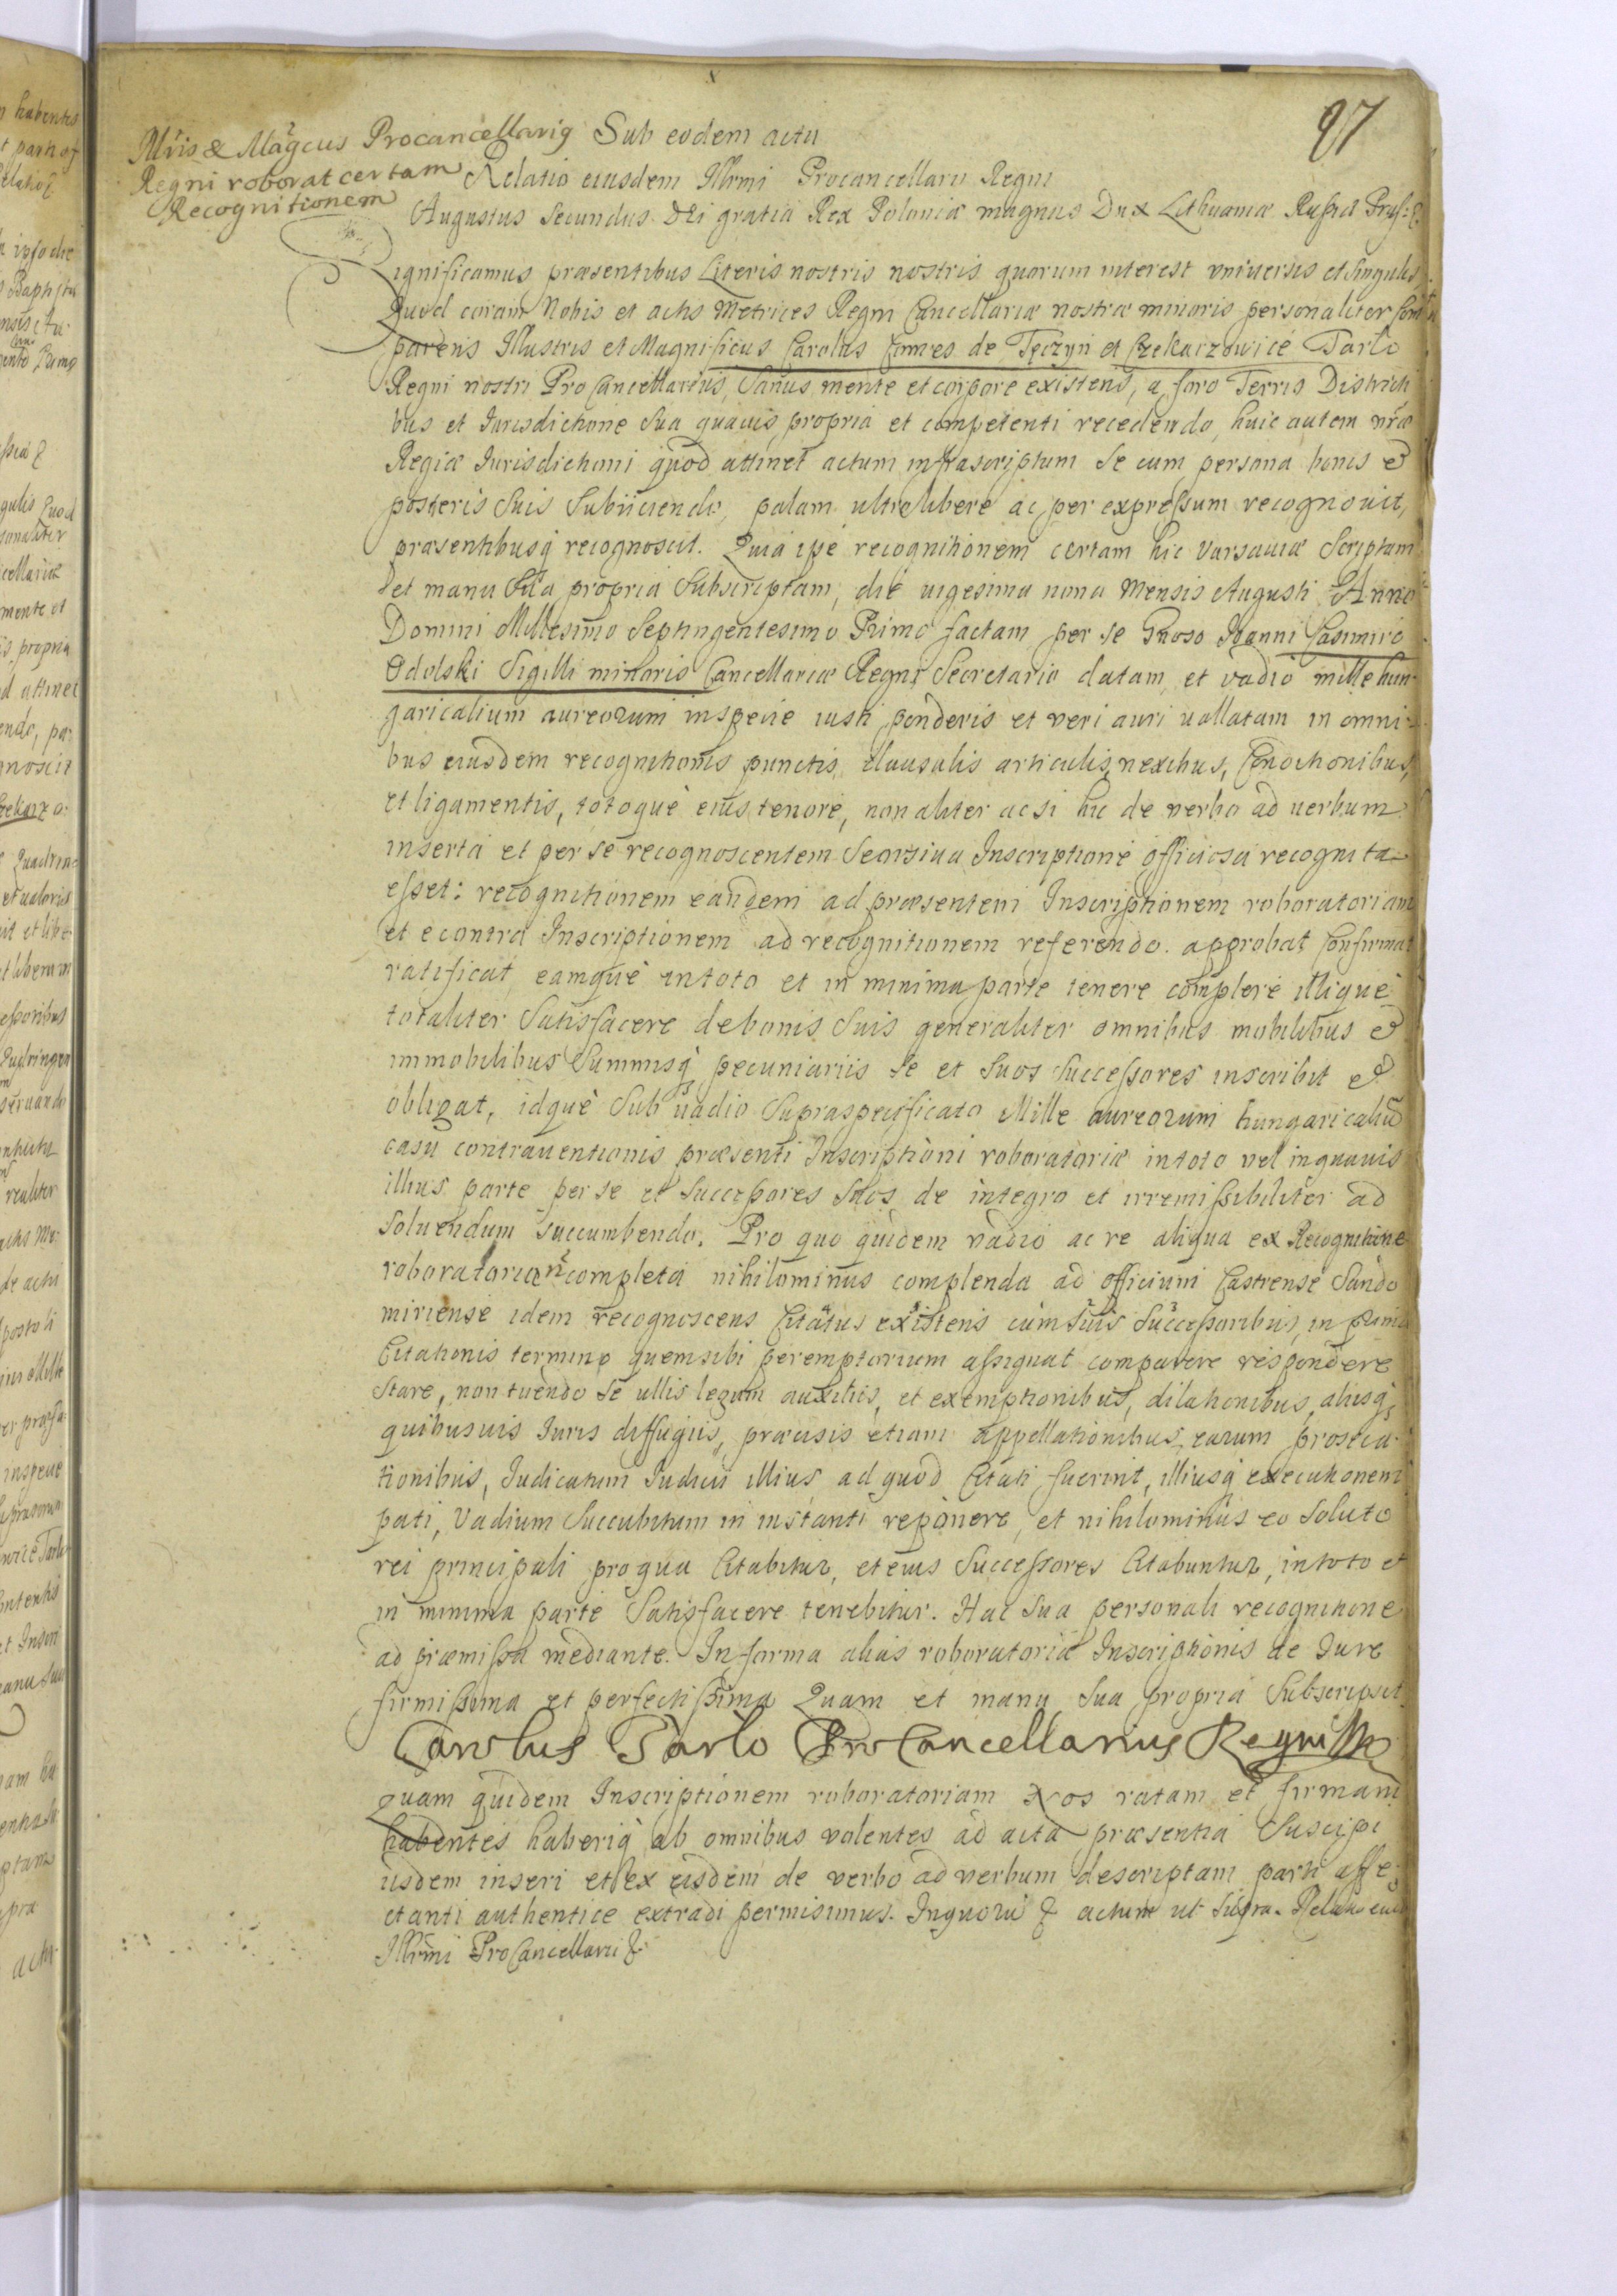 97
Sub eodem actu
Illris & Magcus Procancellarig
Regni roborat certam
Recognitionem
Relatio eiusdem Illrmi Procancellarii Regni
Augustus Secundus Dei gratia Rex Poloniæ magnus Dux Lithuaniæ Russiæ Pruss: &
Significamus præsentibus Literis nostris nostris quorum interest vniuersis et singulis,
Quod coram Nobis et actis Metrices Regni Cancellariæ nostræ minoris personaliter Com
parens Illustris et Magnificus Carolus Comes de Tęczyn et Czekarzowice Tarło
Regni nostri ProCancellarius, Sanus mente et corpore existens, a foro Terris Districti
bus et Iurisdictione Sua quauis propria et competenti recedendo, huic autem nræ
Regiæ Iurisdictioni quod attinet actum infrascriptum Se cum persona bonis et
posteris Suis Subiiciendo, palam ultrolibere ac per expressum recognouit,
præsentibusq recognoscit. Quia ipse recognitionem certam hic Varsauiæ Scriptam
et manu Sua propria Subscriptam, die uigesima nona Mensis Augusti Anno
Domini Millesimo Septingentesimo Primo factam per se Gnoso Ioanni Casimiro
Odolski Sigilli minoris Cancellariæ Regni Secretario datam, et vadio mille hun
garicalium aureorum inspecie iusti ponderis et veri auri uallatam in omni-
bus eiusdem recognitionis punctis, clausulis articulis, nexibus, Conditionibus,
et ligamentis, totoque eius tenore, non aliter ac si hic de verbo ad uerbum
inserta et per se recognoscentem Seorsiua Inscriptione officiosa recognita
esset: recognitionem eandem ad præsentem Inscriptionem roboratoriam
et econtra Inscriptionem ad recognitionem referendo. approbat Confirmat
ratificat, eamque in toto et in minima parte tenere complere illique
totaliter Satisfacere de bonis Suis generaliter omnibus mobilibus et
immobilibus Summisq pecuniariis Se et Suos Successores inscribit et
obligat, idque Sub uadio Supraspecificato Mille aureorum hungaricaliu
casu contrauentionis præsenti Inscriptioni roboratoriæ in toto vel in quauis
illius parte per se et Successores Suos de integro et irremissibiliter ad
Soluendum succumbendo. Pro quo quidem vadio ac re aliqua ex Recognitione
roboratoria n completa nihilominus complenda ad officium Castrense Sando
miriense idem recognoscens Citatus existens cum suis Successoribus, in primo
Citationis termino quem sibi peremptorium assignat comparere respondere
Stare, non tuendo Se ullis legum auxiliis, et exemptionibus, dilationibus, aliisq,
quibusuis Iuris diffugiis, præcisis etiam appellationibus, earum prosecu-
tionibus, Iudicatum Iudicii illius, ad quod Citati fuerint, illiusq executionem
pati, Vadium Succubitum in instanti reponere, et nihilominus eo soluto
rei principali pro qua Citabitur, et eius Successores Citabuntur, in toto et
in minima parte Satisfacere tenebitur. Hac Sua personali recognitione
ad præmissa mediante. In forma alias roboratoriæ Inscriptionis de Iure
firmissima et perfectissima Quam et manu Sua propria Subscripsit.
Carolus Tarło ProCancellarius Regni
Quam quidem Inscriptionem roboratoriam Nos ratam et firmam
habentes haberiq ab omnibus volentes ad acta præsentia Suscipi
iisdem inseri et ex eisdem de verbo ad verbum descriptam parti affe-
ctanti authentice extradi permisimus. In quoru & actum ut supra. Relatio eius
Illrmi ProCancellarii &